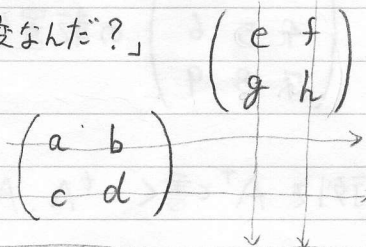 変なんだ？」
e f
g h
a b
c d